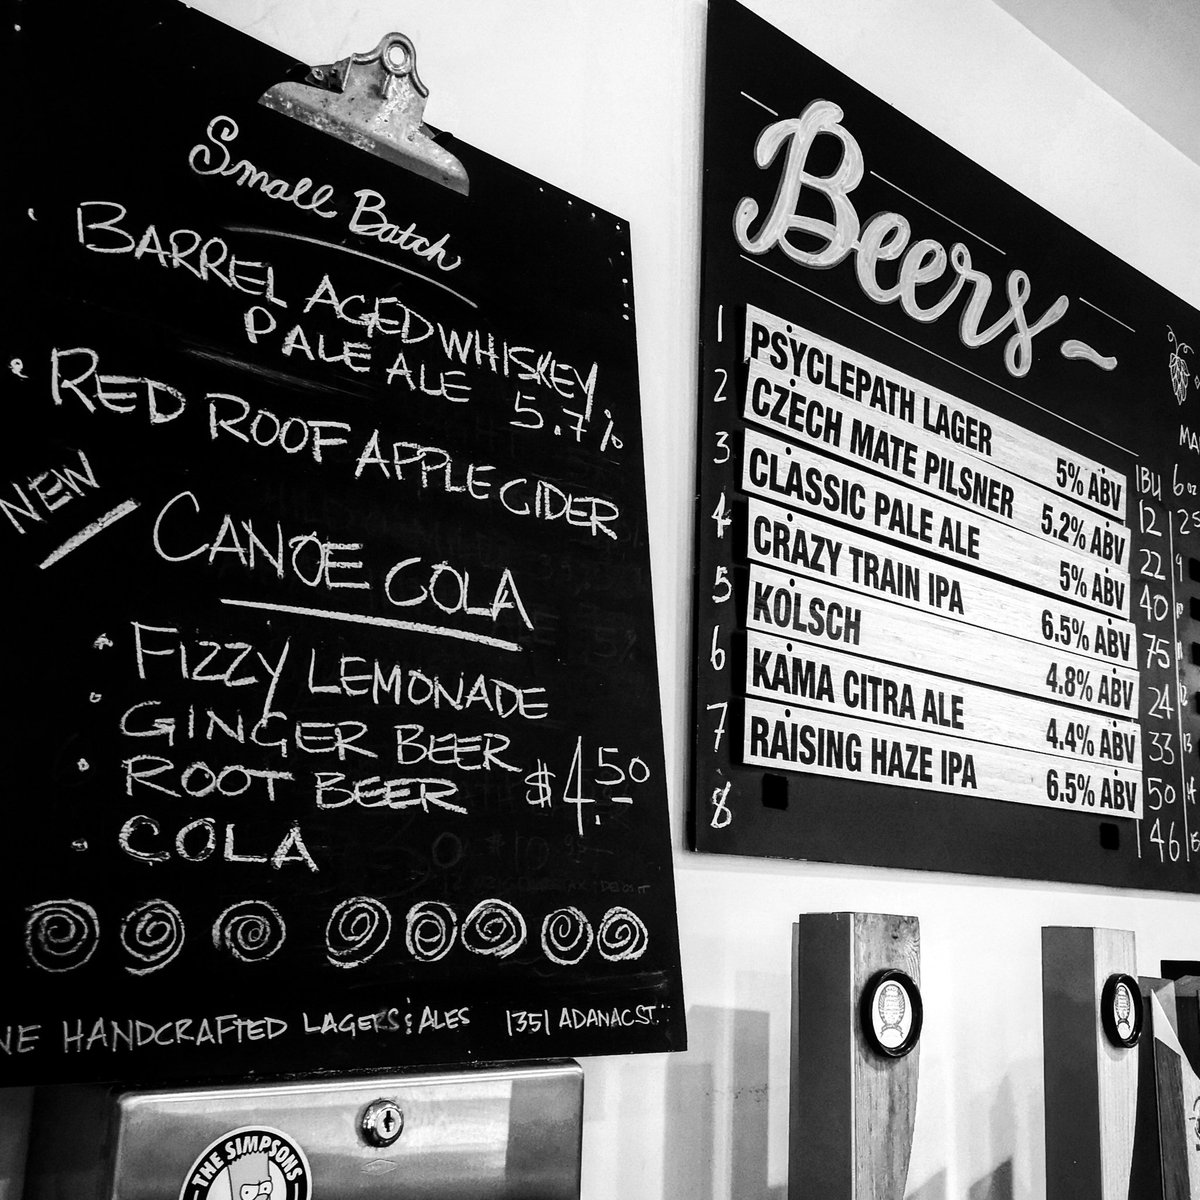 Small Batch
BARREL AGED WHISKEY
PALE ALE 5.7%
RED ROOF APPLE CIDER
NEW
CANOE COLA
FIZZY LEMONADE
GINGER BEER
ROOT BEER
$4.50
COLA
HANDCRAFTED LAGERS & ALES 1351 ADANAC ST.
THE SIMPSONS
Beers
IBU 6 oz
1 PSYCLEPATH LAGER 5% ABV 12
2 CZECH MATE PILSNER 5.2% ABV 22
3 CLASSIC PALE ALE 5% ABV 40
4 CRAZY TRAIN IPA 6.5% ABV 75
5 KOLSCH 4.8% ABV 24
6 KAMA CITRA ALE 4.4% ABV 33
7 RAISING HAZE IPA 6.5% ABV 50
8 46